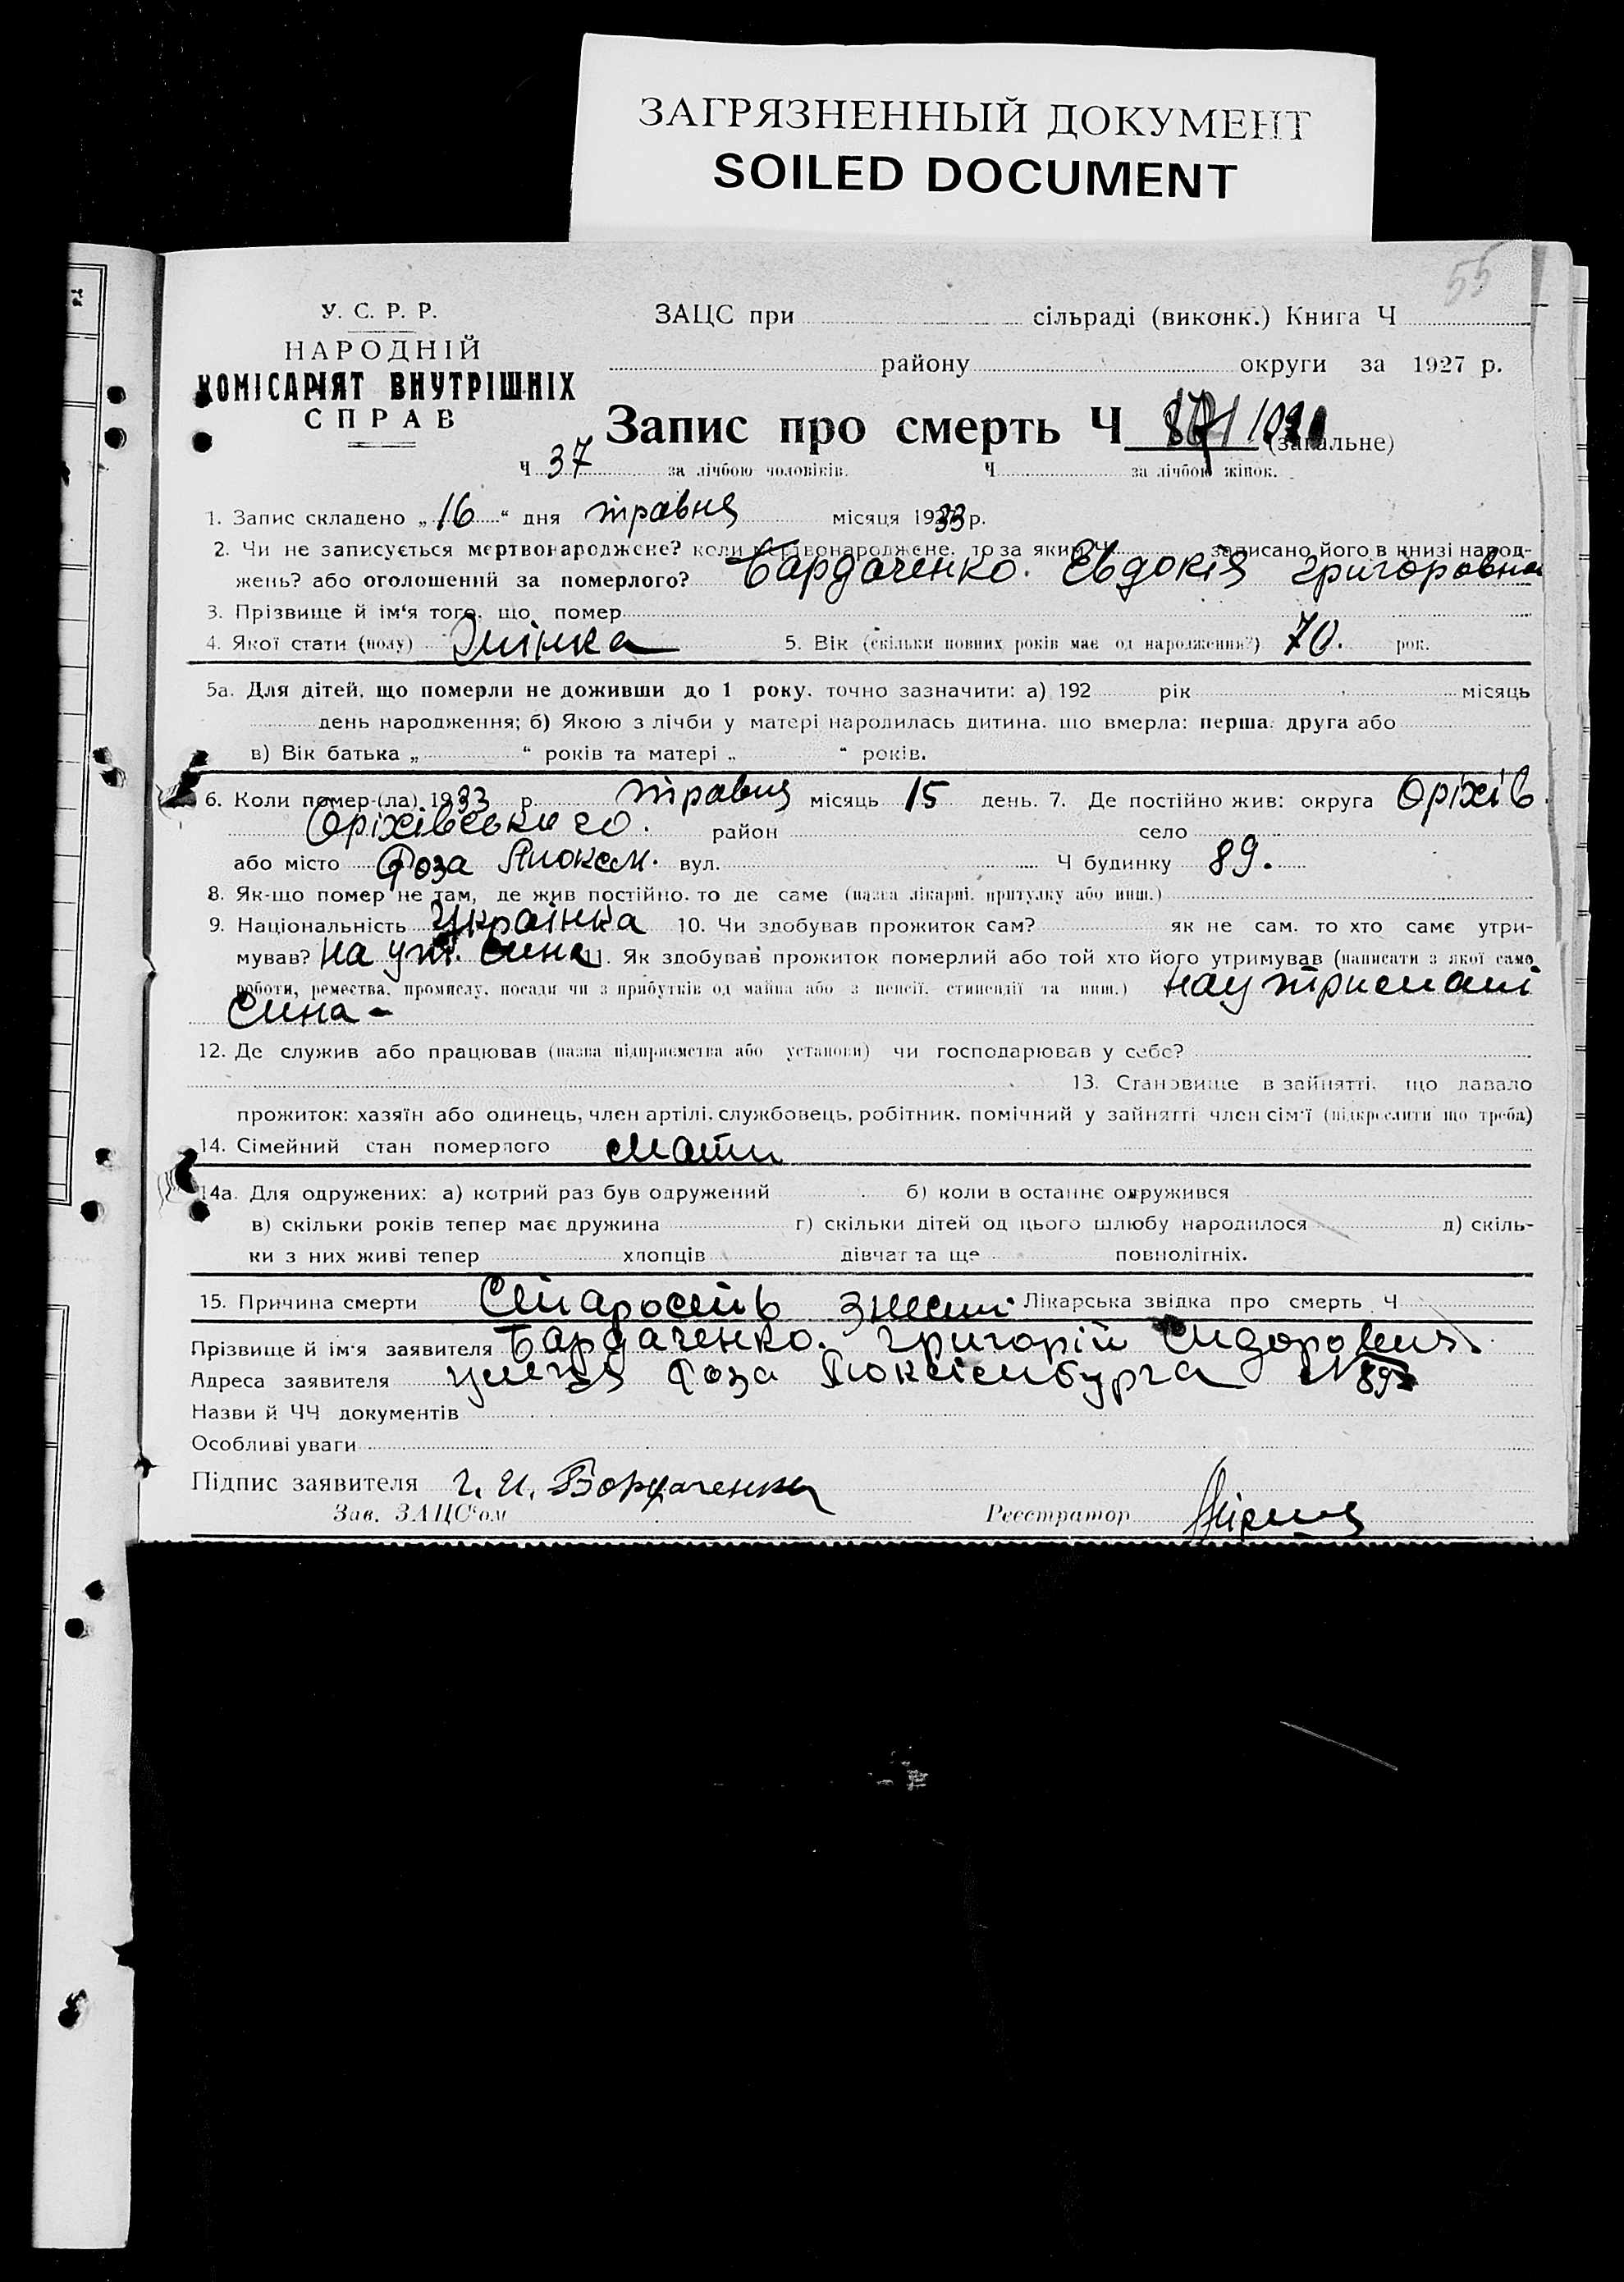 ЗАГРЯЗНЕННЫЙ ДОКУМЕНТ
SOILED DOCUMENT
55
У. С. Р. Р.
НАРОДНІЙ
КОМІСАРІЯТ ВНУТРІШНІХ
СПРАВ
ЗАЦС при сільраді (виконк.) Книга Ч
району округи за 1927 р.
Запис про смерть Ч (загальне)
Ч 37 за лічбою чоловіків. Ч за лічбою жінок.
1. Запис складено „16“ дня травня місяця 1933 р.
2. Чи не записується мертвонароджене? коли мертвонароджене, то за яким Ч записано його в книзі народ-
жень? або оголошений за померлого? Бардаченко. Евдокія Григоровна
3. Прізвище й ім‘я того, що помер
4. Якої стати (полу) Жінка 5. Вік (скільки повних років має од народження?) 70. рок.
5а. Для дітей, що померли не доживши до 1 року, точно зазначити: а) 192 рік місяць
день народження; б) Якою з лічби у матері народилась дитина, що вмерла: перша, друга або
в) Вік батька „ “ років та матері „ “ років.
6. Коли помер-(ла) 1933 р. травня місяць 15 день. 7. Де постійно жив: округа Оріхів
Оріхівського. район село
або місто Роза Люксм. вул. Ч будинку 89.
8. Як-що помер не там, де жив постійно, то де саме (назва лікарні, притулку або инш.)
9. Національність Українка 10. Чи здобував прожиток сам? як не сам, то хто саме утри-
мував? на ут. сина 11. Як здобував прожиток померлий або той хто його утримував (написати з якої само
роботи, ремества, промислу, посади чи з прибутків од майна або з пенсії, стипендії та инш.) на утримані
Сина -
12. Де служив або працював (назва підприємства або установи) чи господарював у себе?
13. Становище в зайнятті, що давало
прожиток: хазяїн або одинець, член артілі, службовець, робітник, помічний у зайнятті член сім‘ї (підкреслити що треба)
14. Сімейний стан померлого мати
14а. Для одружених: а) котрий раз був одружений б) коли в останнє одружився
в) скільки років тепер має дружина г) скільки дітей од цього шлюбу народилося д) скіль-
ки з них живі тепер хлопців дівчат та ще повнолітніх.
15. Причина смерти Старость Лікарська звідка про смерть Ч
Прізвище й ім‘я заявителя Бардаченко. Григорій Сидорович.
Адреса заявителя улиця Роза Люксімбурга № 89
Назви й ЧЧ документів
Особливі уваги
Підпис заявителя Г. И. Бордаченко
Зав. ЗАЦС‘ом Реєстратор